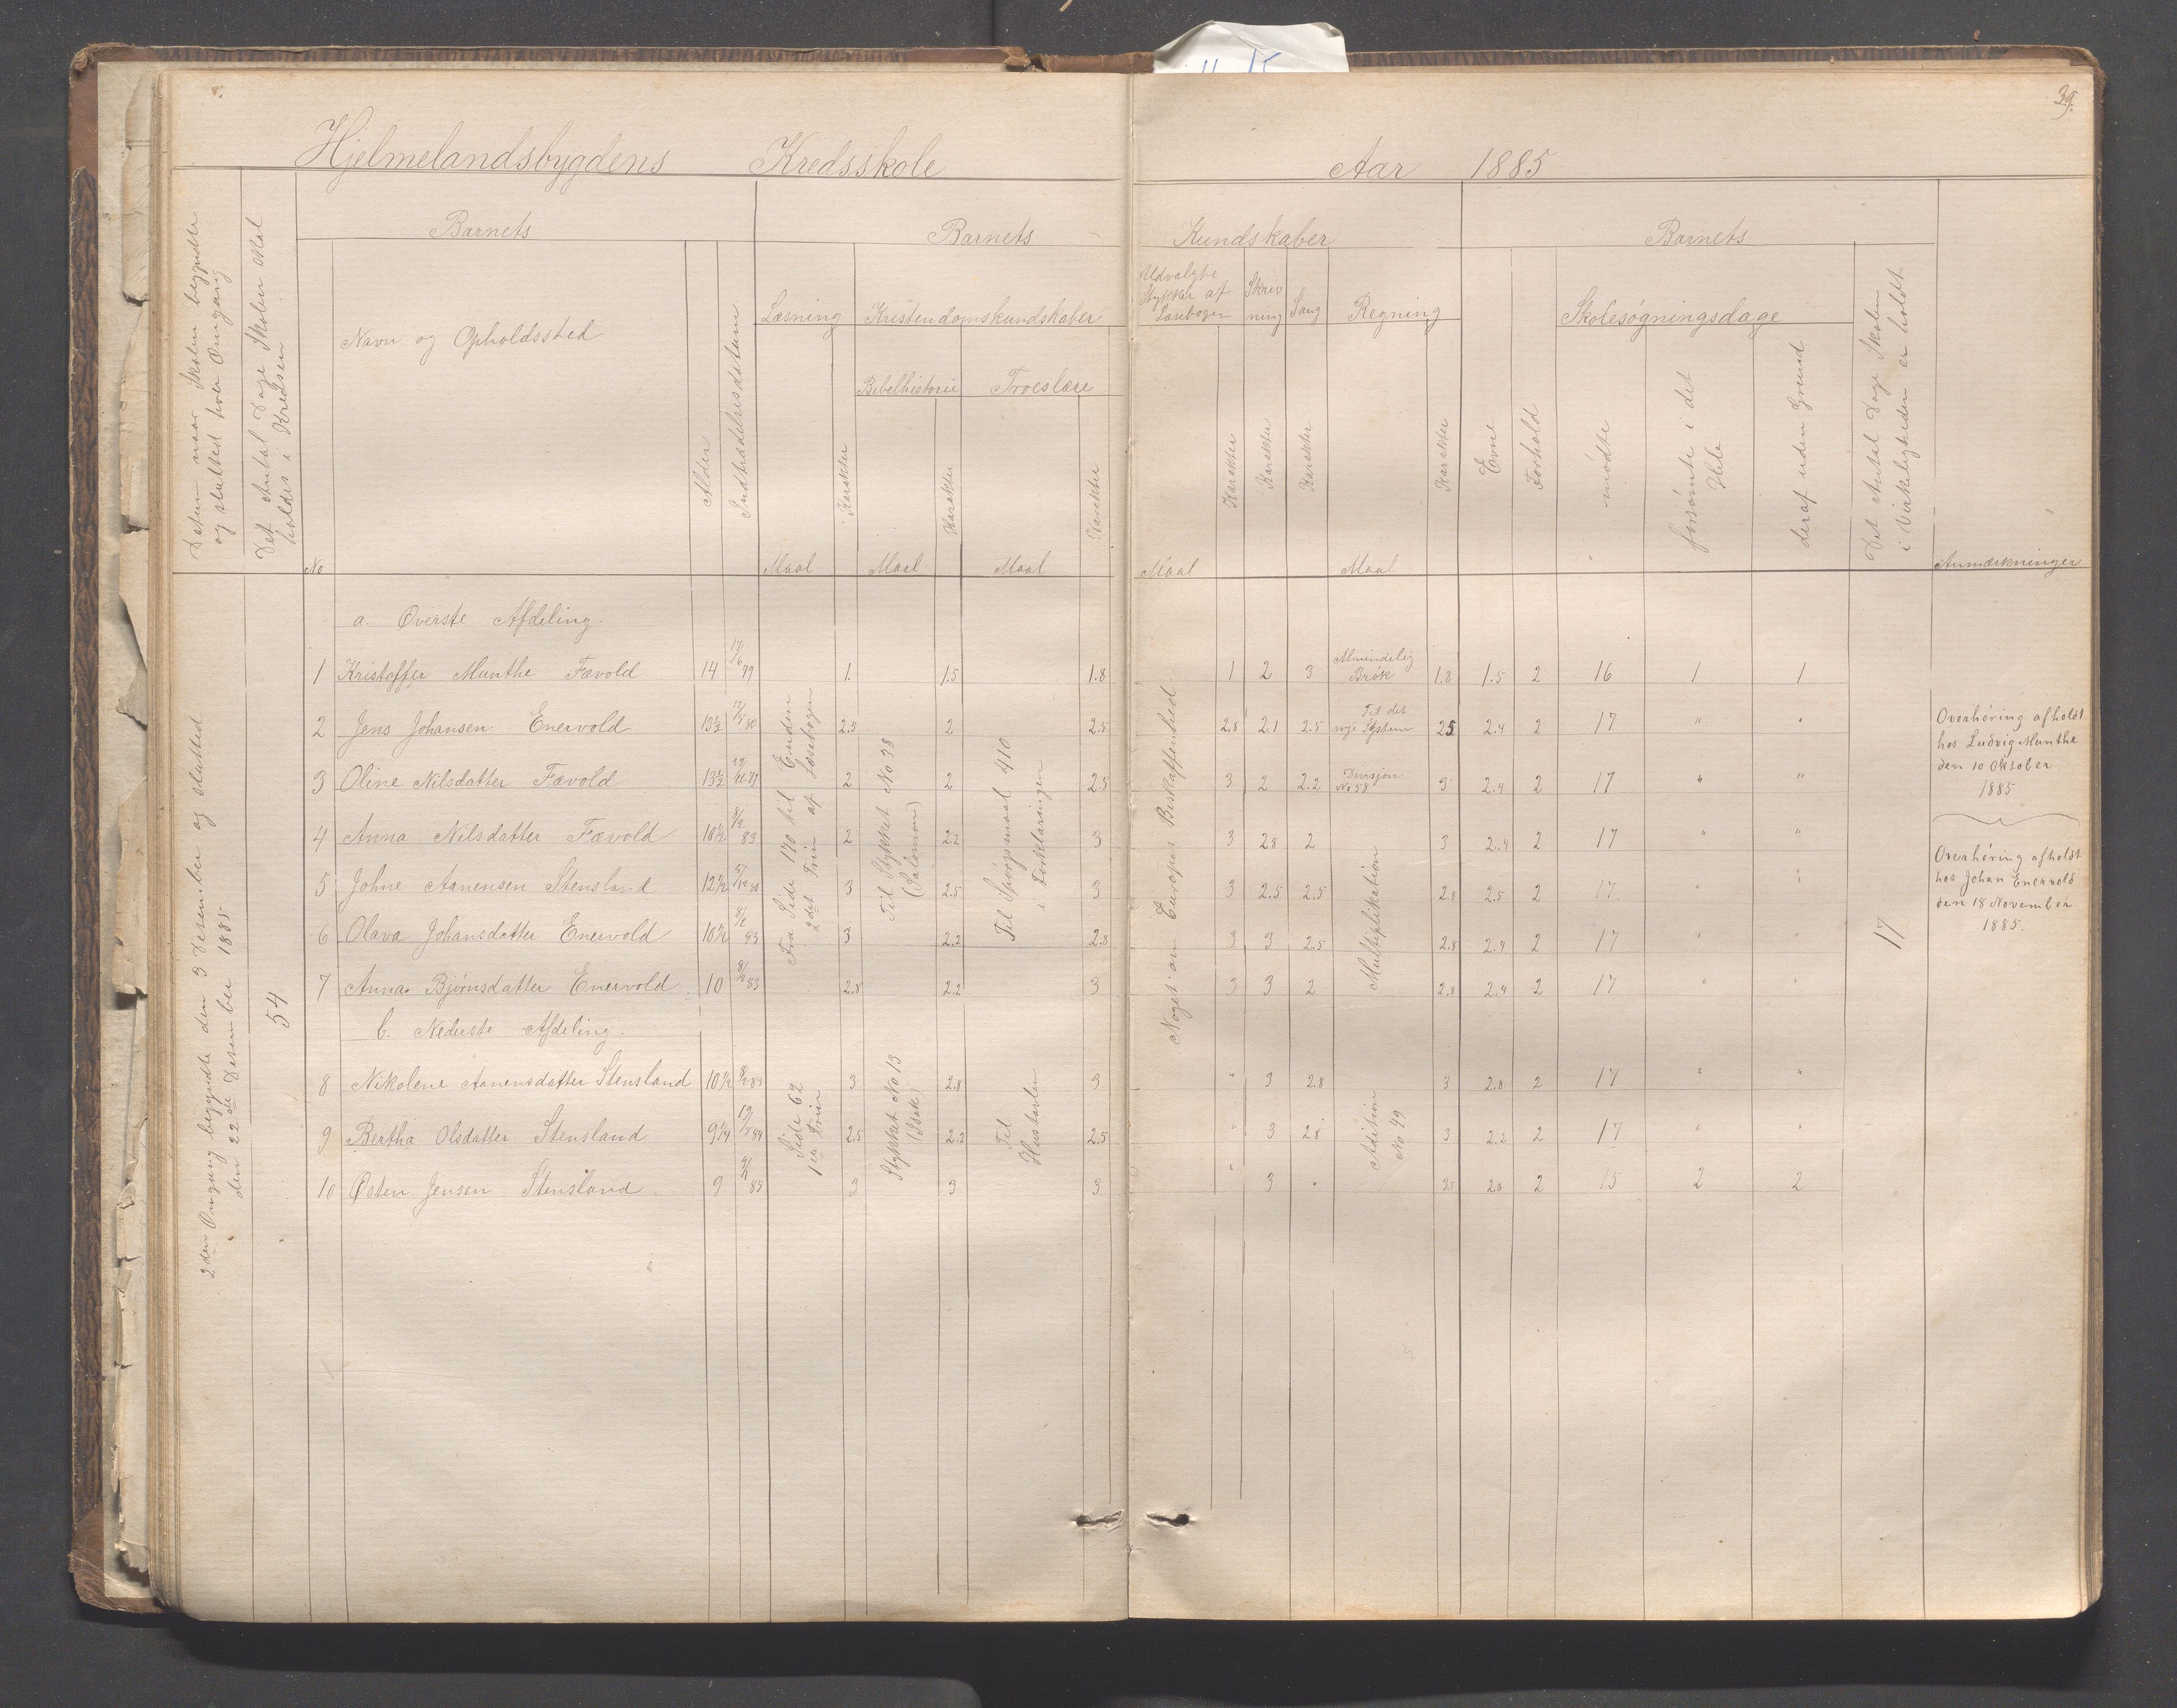 39.
Hjelmelandsbygdens Kredsskole Aar 1885
Datum naar Skolen begyndte og slutted hver Omgang
Det Antal Dage Skolen skal holdes i Kredsen
Barnets
No
Navn og Opholdssted
Alder
Indtrædelsesdatum
Barnets Kundskaber
Læsning
Maal
Karakter
Kristendomskundskaber
Bibelhistorie
Maal
Karakter
Troeslære
Maal
Karakter
Udvalgte Stykker af Læsebogen
Maal
Karakter
Skrivning
Karakter
Sang
Karakter
Regning
Maal
Karakter
Barnets
Evne
Forhold
Skolesøgningsdage
mødte
forsømte i det Hele
deraf uden Grund
Det Antal Dage Skolen i Virkeligheden er holdt
Anmærkninger
2den Omgang begyndte den 3 Desember og slutted den 22de Desember 1885
54
a. Øverste Afdeling.
1 Kristoffer Munthe Fævold 14 17/6 79 1. 1.5 1.8 1 2 3 Almindelig Brøk 1.8 1.5 2 16 1 1
2 Jens Johansen Enervold 13½ 17/5 80 2.5 2 2.5 2.8 2.1 2.5 Til det nye System 2.5 2.4 2 17 " "
3 Oline Nilsdatter Fævold 13½ 2 2 2.5 3 2 2.2 Divisjon No 58 3 2.4 2 17 " "
4 Anna Nilsdatter Fævold 10½ 83 2 2.2 3 3 2.8 2 3 2.4 2 17 " "
5 Johne Aanensen Stensland 12½ 3 2.5 3 3 2.5 2.5 2.8 2.5 2 17 " "
6 Olava Johansdatter Enervold 10½ 83 3 2.2 2.8 3 3 2.5 2.8 2.4 2 17 " "
7 Anna Bjørnsdatter Enervold 10 83 2.8 2.2 3 3 3 2 2.8 2.4 2 17 " "
Fra Side 170 til Enden 2det Trin af Læsebogen
Til Stykket No 38 (Salomon)
Til Spørgsmaal 410 i Forklaringen
Noget om Europas Beskaffenhed
Multiplikation
17
b. Nederste Afdeling.
8 Nikolene Aanensdatter Stensland 10½ 83 3 2.8 3 " 3 2.8 3 2.8 2 17 " "
9 Bertha Olsdatter Stensland 9¼ 84 2.5 2.2 2.5 " 3 2.8 3 2.2 2 17 " "
10 Østen Jensen Stensland 9 3 3 3 " 3 " 3.5 2.8 2 15 2 2
Side 62 1ste Trin
Stykket No 13 (Isak)
Til Hustavlen
Adition No 99
Overhøring afholdt
hos Ludvig Munthe
den 10 Oktober
1885
Overhøring afholdt
hos Johan Enervold
den 18 November
1885.